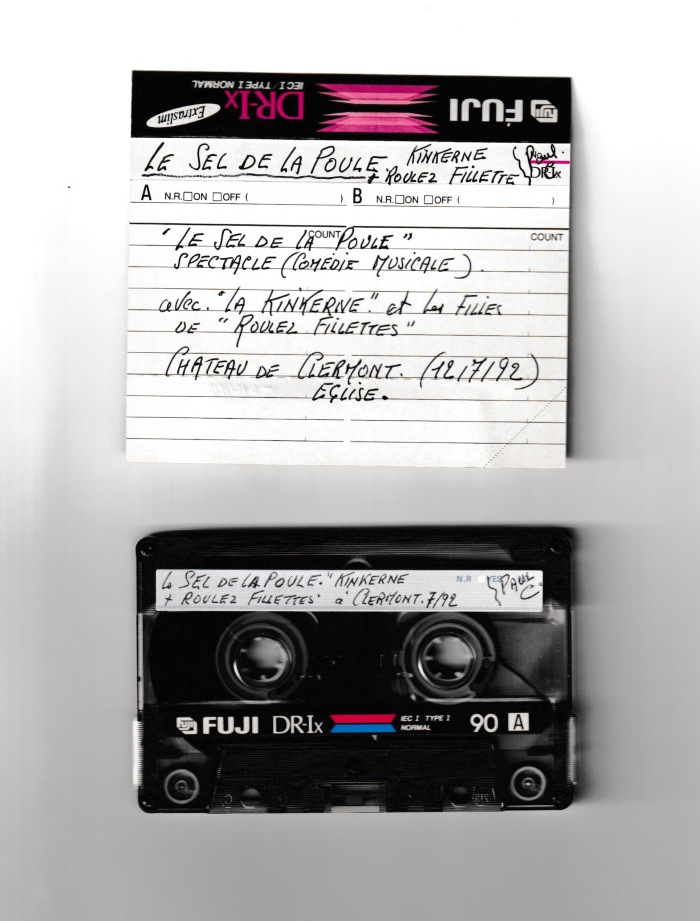 FUJI DR-Ix IEC I / TYPE I NORMAL Extraslim
LE SEL DE LA POULE. KINKERNE
+ ROULEZ FILLETTE Paul.
DR-Ix
A N.R.□ON □OFF ( ) B N.R.□ON □OFF ( )
COUNT COUNT
"LE SEL DE LA POULE"
SPECTACLE (COMÉDIE MUSICALE).
avec. "LA KINKERNE" et les FILLES
DE "ROULEZ FILLETTES"
CHATEAU DE CLERMONT. (12/7/92)
EGLISE.
Le SEL DE LA POULE. "KINKERNE N.R YES PAUL
+ ROULEZ FILLETTES" à CLERMONT. 7/92 C.
FUJI DR-Ix IEC I TYPE I 90 A
NORMAL